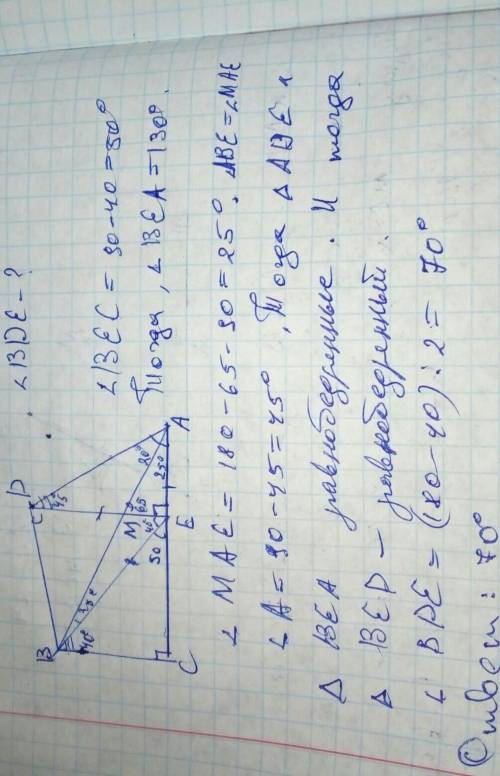 ∠BDE - ?
B
D
M
A
E
C
45
20°
65
25°
40
50
∠BEC = 90-40=50°
Тогда, ∠BEA=130°.
∠ MAE = 180-65-90=25°. ∠ABE=∠MAE
∠A=90-45=45°, Тогда △ADE и
△ BEA равнобедренные. И тогда
△ BED - равнобедренный.
∠ BDE = (180-40):2= 70°
Ответ: 70°